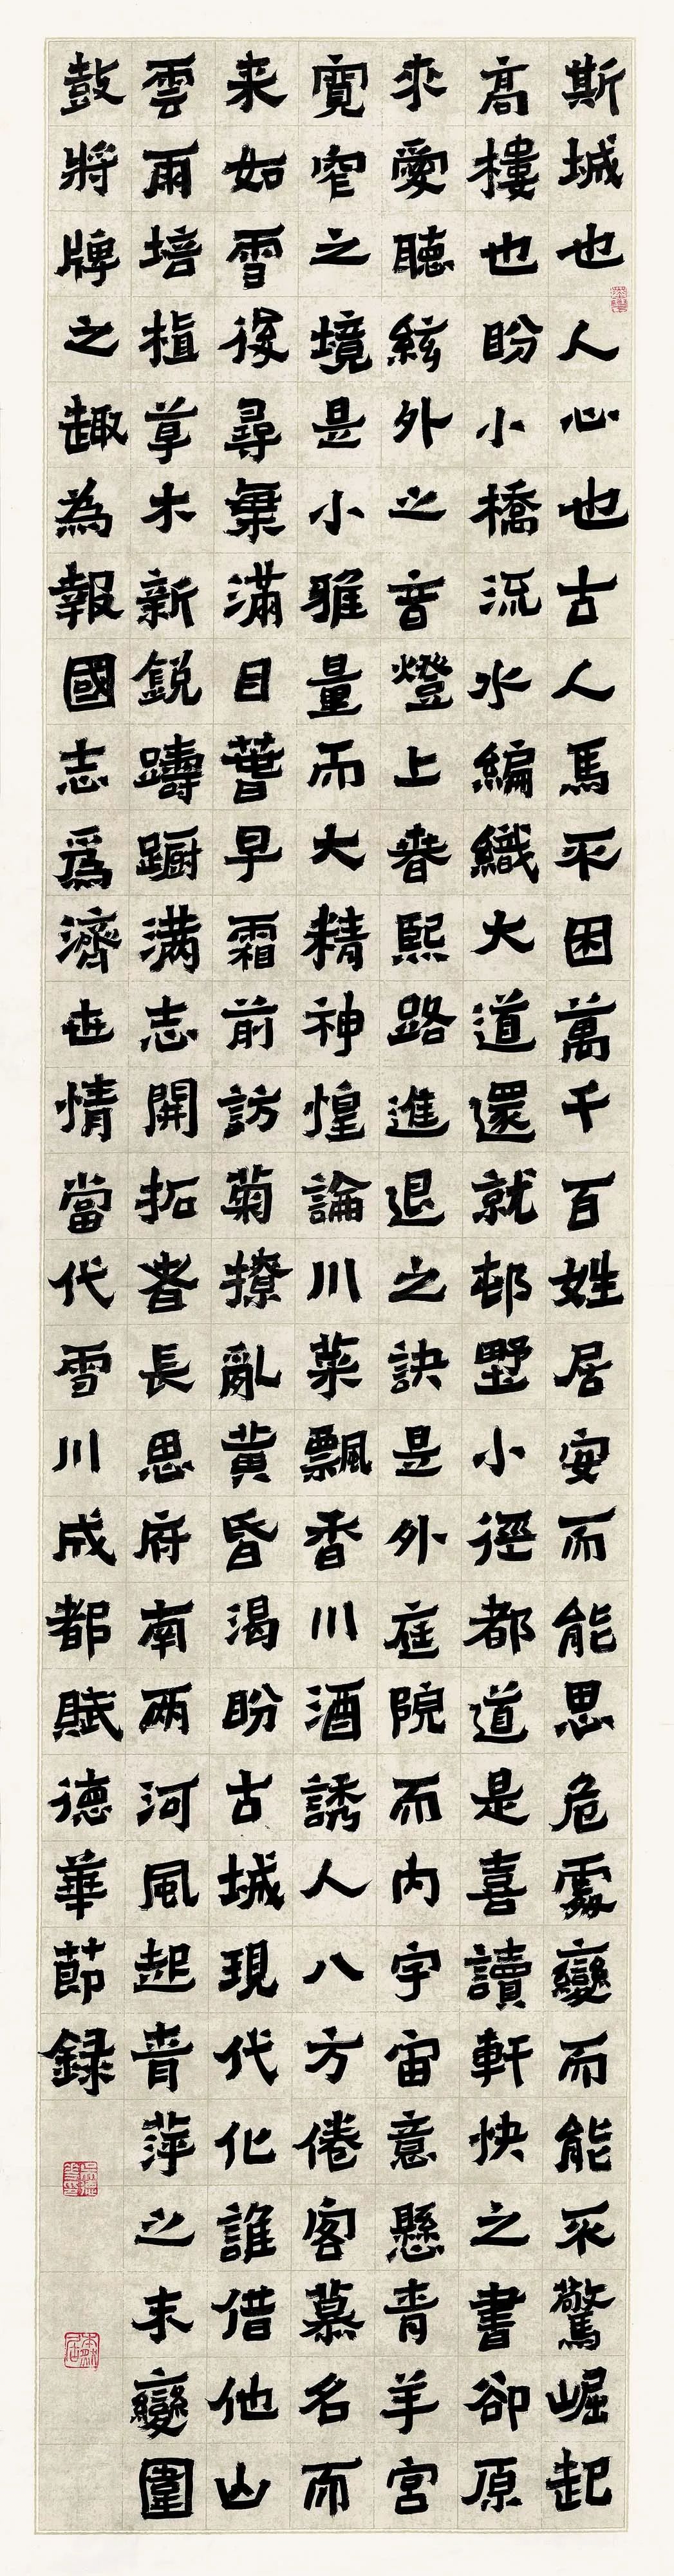 斯城也人心也古人馬不困萬千百姓居安而能思危處變而能不驚崛起
高樓也盼小橋流水編織大道還就邨墅小徑都道是喜讀軒快之書卻原
來愛聽絃外之音燈上春熙路進退之訣是外庭院而內宇宙意懸青羊宮
寬窄之境是小雅量而大精神惶論川菜飄香川酒誘人八方倦客慕名而
来如雪後尋棄滿目蕾早霜前訪菊撩亂黃昏渴盼古城現代化誰借他山
雲雨培植草木新銳躊躕满志開拓者長思府南兩河風起青萍之末變圍
鼓將牌之趣為報國志爲濟世情當代雪川成都賦德華節録